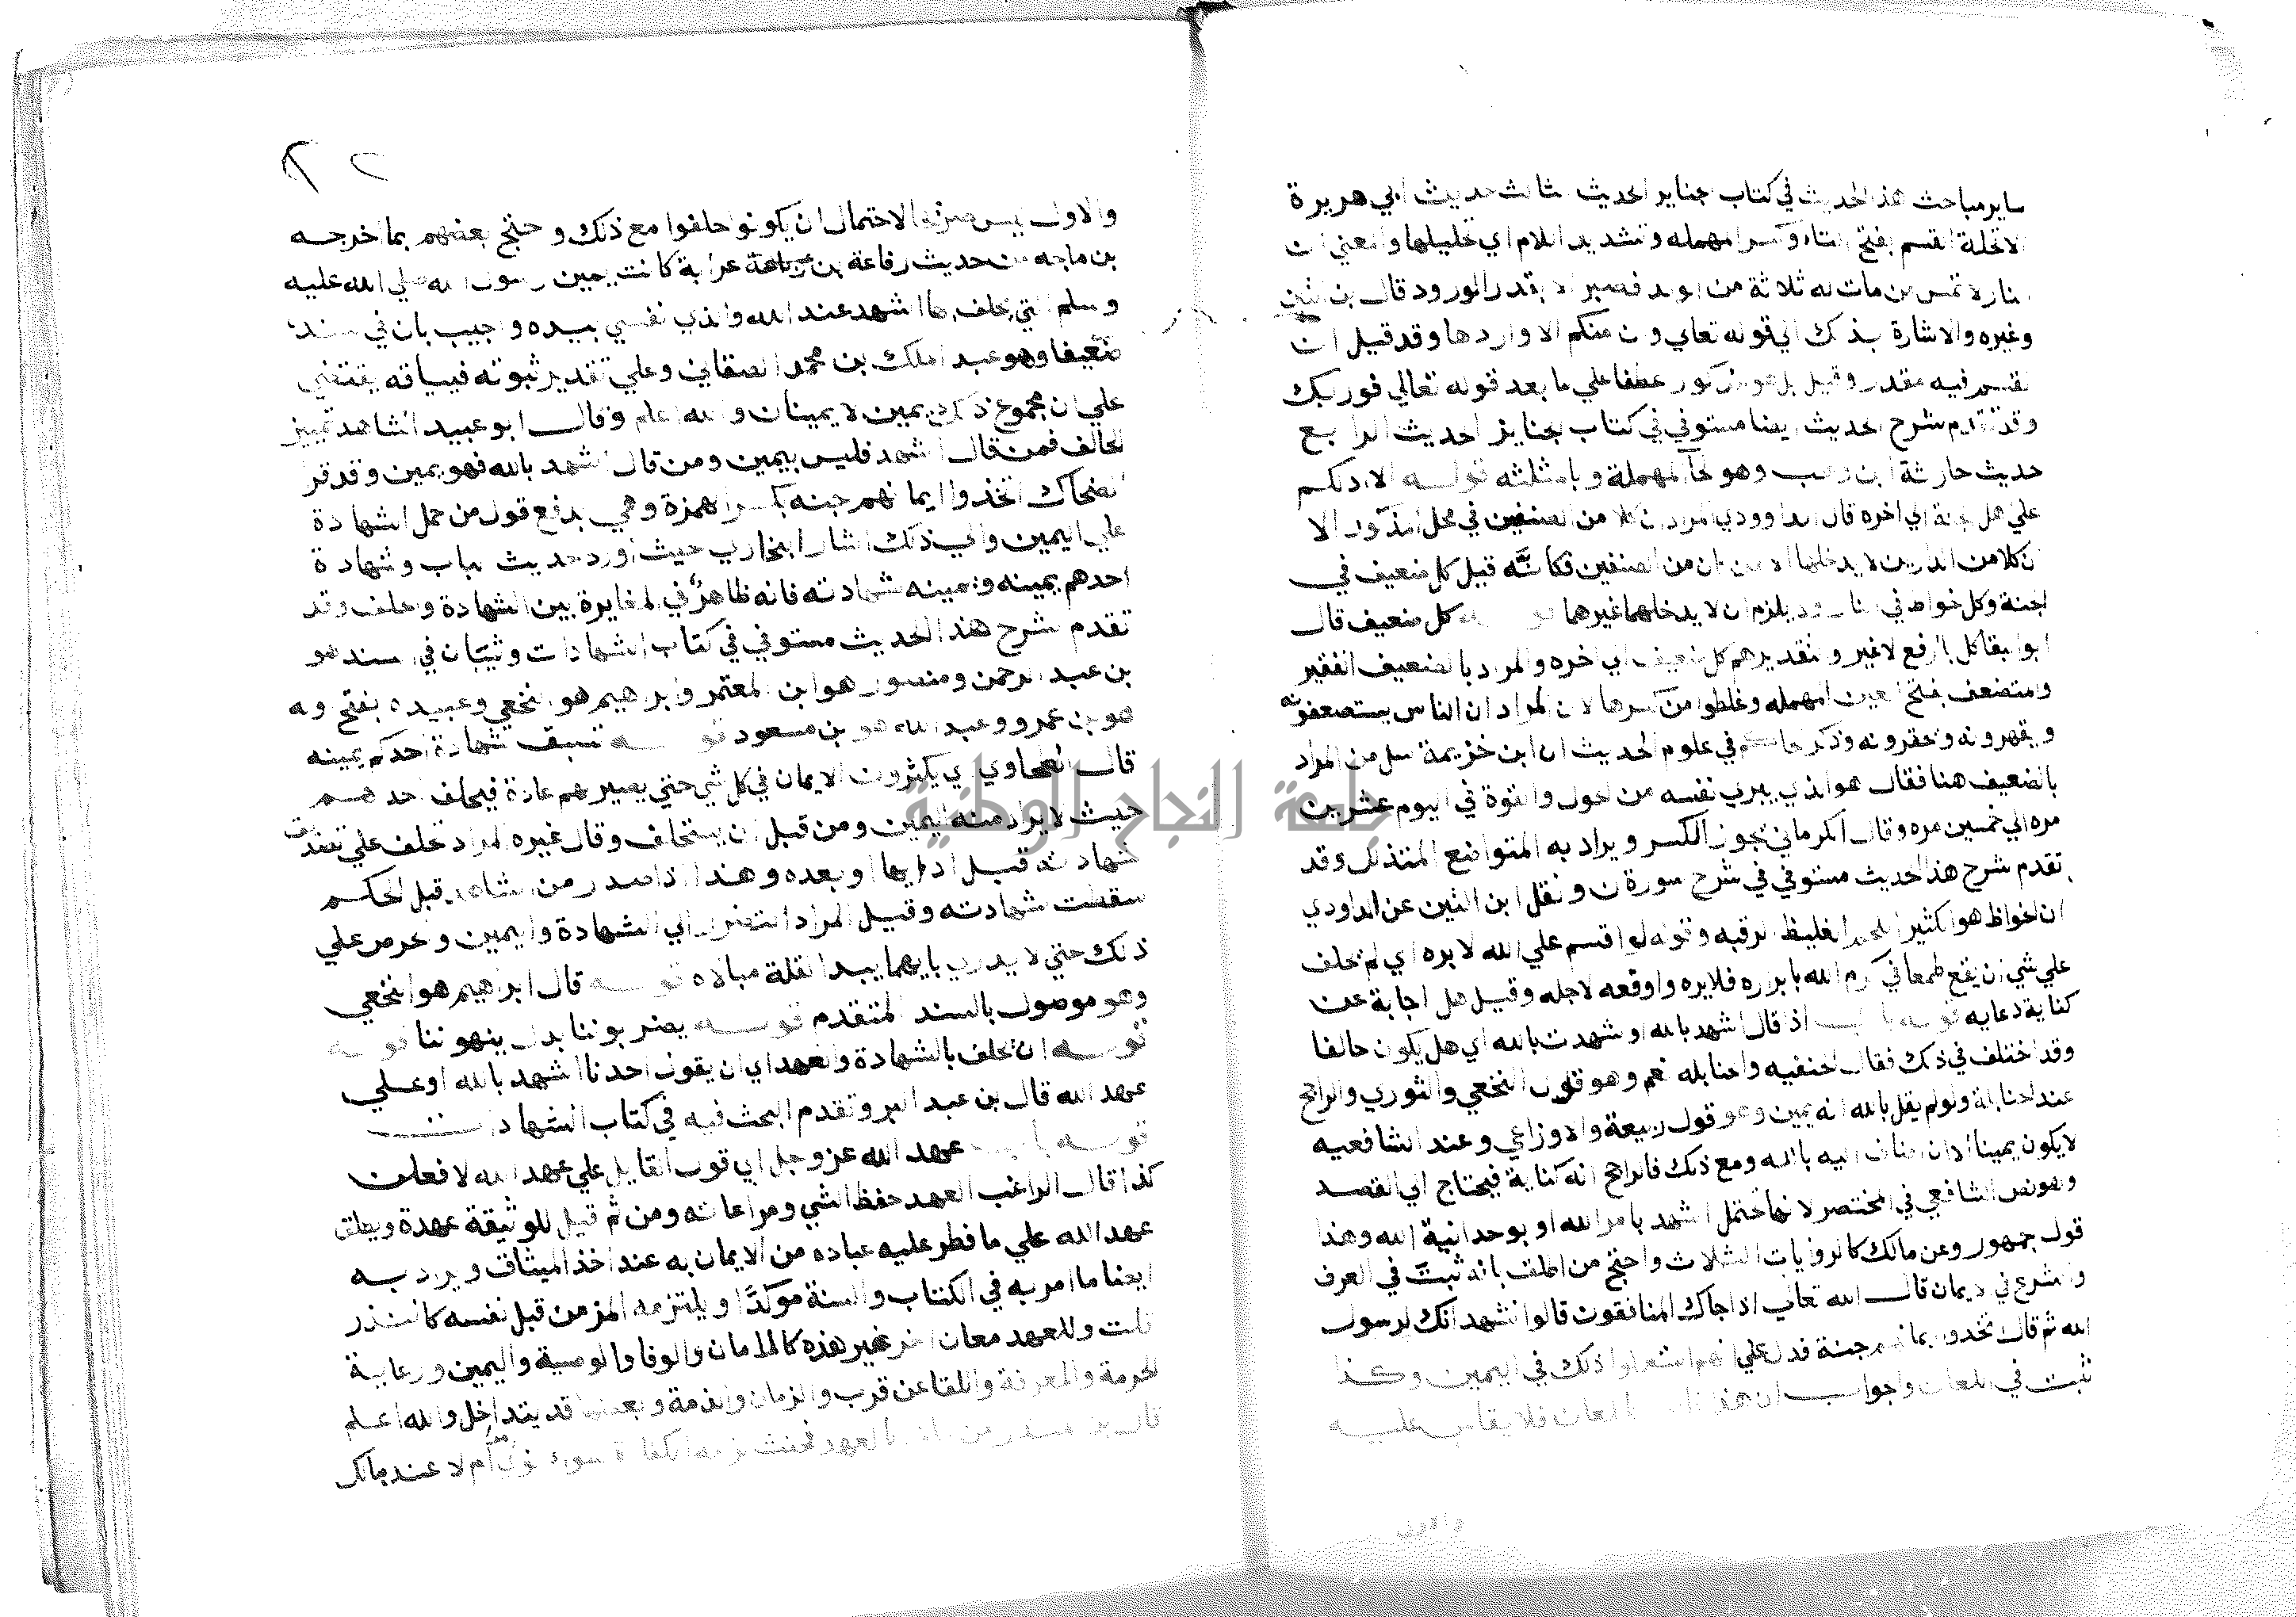 ساير مباحث هذا الحديث في كتاب الجنايز الحديث الثالث حديث ابي هريرة
الا تحلة القسم بفتح التاء وكسر المهمله وتشديد اللام اي تحليلها والمعني ان
النار لا تمس من مات له ثلاثة من الولد فصبر الا بقدر الورود قال بن التين
وغيره والاشارة بذلك الي قوله تعالي وان منكم الا واردها وقد قيل ان
القسم فيه مقدر وقيل بل هو مذكور عطفا علي ما بعد قوله تعالي فوربك
وقد تقدم شرح الحديث ايضا مستوفي في كتاب الجنايز الحديث الرابع
حديث حارثة ابن وهب وهو بالحا المهملة وبالمثلثه قوله الا ادلكم
علي اهل الجنة الي اخره قال الداوودي المراد ان كلا من الصنفين في محل المذكور لا
ان كلا من الدارين لا يدخلها الا من كان من الصنفين فكأنّه قيل كل ضعيف في
الجنة وكل جواظ في النار ولا يلزم ان لا يدخلهما غيرهما قوله كل ضعيف قال
ابو البقا كل بالرفع لا غير والتقدير هم كل ضعيف الي اخره والمراد بالضعيف الفقير
والمتضعف بفتح العين المهمله وغلطوا من كسرها لان المراد ان الناس يستضعفونه
ويقهرونه ويحقرونه وذكر الحاكم في علوم الحديث ان ابن خزيمة سل من المراد
بالضعيف هنا فقال هو الذي يبري نفسه من الحول والقوة في اليوم عشرين
مره الي خمسين مره وقال الكرماني يجوز الكسر ويراد به المتواضع المتذلل وقد
تقدم شرح هذا الحديث مستوفي في شرح سورة ن ونقل ابن التين عن الداودي
ان الجواظ هو الكثير اللحم الغليظ الرقبه وقوله لو اقسم علي الله لابره اي لو حلف
علي شي ان يقع طمعا في كرم الله بابراره فلابره واوقعه لاجله وقيل هل اجابة عن
كناية دعايه قوله باب اذا قال اشهد بالله او شهدت بالله اي هل يكون حالفا
وقد اختلف في ذلك فقال الحنفيه والحنابله نعم وهو قول النخعي والثوري والراجح
عند الحنابلة ولو لم يقل بالله انه يمين وهو قول ربيعة والاوزاعي وعند الشافعيه
لا يكون يمينا الا ان اضاف اليه بالله ومع ذلك فالراجح انه كناية فيحتاج الي القصد
وهو نص الشافعي في المختصر لانها تحتمل اشهد بامر الله او بوحدانية الله وهذا
قول جمهور وعن مالك كالروايات الثلاث واحتج من اطلق بانه ثبت في العرف
والشرع في الايمان قال الله تعالي اذا جاك المنافقون قالوا نشهد انك لرسول
الله ثم قال اتخذوا ايمانهم جنة فدل علي انهم استعملوا ذلك في اليمين وكذا
ثبت في اللعان والجواب ان هذا باللعان فلا يقاس عليه
والاول
٢
والاول ليس صريحا لاحتمال ان يكونوا حلفوا مع ذلك واحتج بعضهم بما اخرجه
بن ماجه من حديث رفاعة بن عرابة كانت يمين رسول الله صلي الله عليه
وسلم التي يحلف بها اشهد عند الله والذي نفسي بيده واجيب بان في سنده
ضعيفا وهو عبد الملك بن محمد الصنعاني وعلي تقدير ثبوته فسياقه يقتضي
علي ان مجموع ذلك يمين لا يمينان والله اعلم وقال ابو عبيد الشاهد تمييز
الحالف فمن قال اشهد فليس بيمين ومن قال اشهد بالله فهو يمين وقد قر
الضحاك اتخذوا ايمانهم جنه بكسر الهمزة وهي بدفع قول من حمل الشهادة
علي اليمين والي ذلك اشار البخاري حيث اورد حديث الباب وشهادة
احدهم يمينه ويمينه شهادته فانه ظاهرٌ في المغايرة بين الشهادة والحلف وقد
تقدم شرح هذا الحديث مستوفي في كتاب الشهادات وشيبان في السند هو
بن عبد الرحمن ومنصور هو ابن المعتمر وابرهيم هو النخعي وعبيده بفتح اوله
هو بن عمرو وعبد الله هو بن مسعود قوله تسبق شهادة احدكم يمينه
قال الطحاوي اي يكثرون الايمان في كل شي حتي يصير لهم عادة فيحلف احدهم
حيث لا يراد منه اليمين ومن قبل ان يستحلف وقال غيره المراد تحلف علي تصديق
شهادته قبل ادايها او بعده وهذا اذا صدر من شاهد قبل الحكم
سقطت شهادته وقيل المراد التسرع الي الشهادة واليمين والحرص علي
ذلك حتي لا يدري بايهما يبدا لقلة مبالاه قوله قال ابراهيم هو النخعي
وهو موصول بالسند المتقدم قوله يضربوننا بدل ينهوننا قوله
قوله ان نحلف بالشهادة والعهد اي ان يقول احدنا اشهد بالله او علي
عهد الله قال بن عبد البر وتقدم البحث فيه في كتاب الشهادات
قوله باب عهد الله عز وجل اي قول القايل علي عهد الله لافعلن
كذا قال الراغب العهد حفظ الشي ومراعاته ومن ثم قيل للوثيقة عهدة ويطلق
عهد الله علي ما فطر عليه عباده من الايمان به عند اخذ الميثاق ويراد به
ايضا ما امر به في الكتاب والسنة موكدًا ويلتزمه المر من قبل نفسه كالنذر
قلت وللعهد معان اخر غير هذه كالامان والوفا والوصية واليمين ورعاية
الحرمة والمعرفة واللقا عن قرب والزمان والذمة وبعضها قد يتداخل والله اعلم
قال بن المنذر من حلف بالعهد فحنث لزمه الكفارة سوا نوي ام لا عند مالك
جامعة النجاح الوطنية